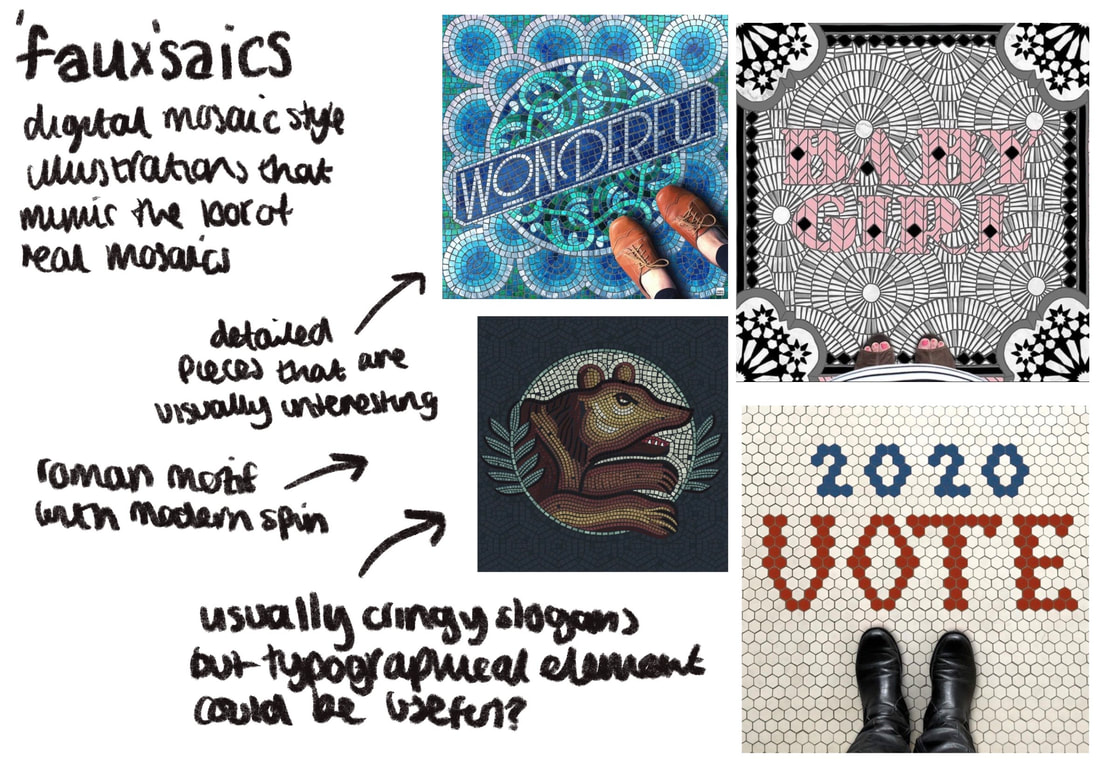 'faux'saics
digital mosaic style
illustrations that
mimic the look of
real mosaics
detailed
pieces that are
visually interesting
roman motif
with modern spin
usually cringy slogans
but typographical element
could be useful?
WONDERFUL
BABY
GIRL
2020
VOTE